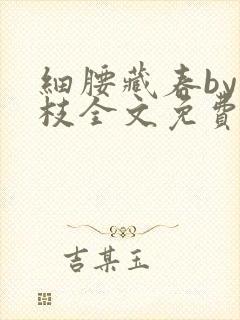 細腰藏春by
枝全文免費
吉某玉